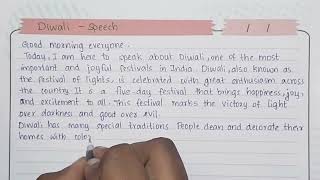 Diwali - Speech
/ /
Good morning everyone.
Today, I am here to speak about Diwali, one of the most
important and joyful festivals in India. Diwali, also known as
the festival of lights, is celebrated with great enthusiasm across
the country. It is a five-day festival that brings happiness, joy,
and excitement to all. This festival marks the victory of light
over darkness and good over evil.
Diwali has many special traditions. People clean and decorate their
homes with colo